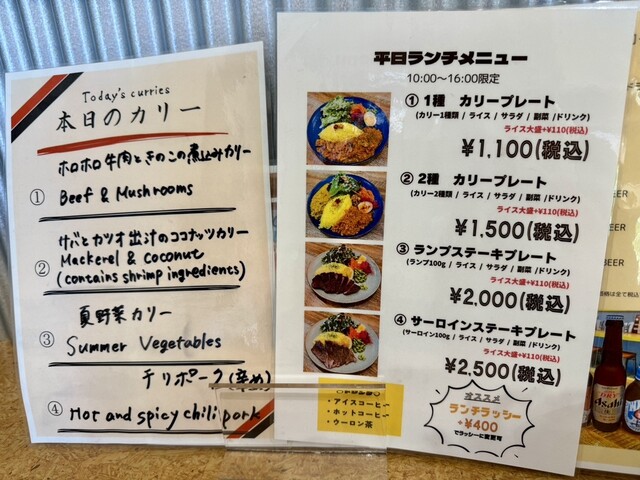 Today's curries
本日のカリー
ホロホロ牛肉ときのこの煮込みカリー
① Beef & Mushrooms
サバとカツオ出汁のココナッツカリー
② Mackerel & coconut
(contains shrimp ingredients)
夏野菜カリー
③ Summer Vegetables
チリポーク(辛め)
④ Hot and spicy chili pork
平日ランチメニュー
10:00〜16:00限定
① 1種 カリープレート
(カリー1種類 / ライス / サラダ / 副菜 /ドリンク)
ライス大盛+¥110(税込)
¥1,100(税込)
② 2種 カリープレート
(カリー2種類 / ライス / サラダ / 副菜 /ドリンク)
ライス大盛+¥110(税込)
¥1,500(税込)
③ ランプステーキプレート
(ランプ100g / ライス / サラダ / 副菜 /ドリンク)
ライス大盛+¥110(税込)
¥2,000(税込)
④ サーロインステーキプレート
(サーロイン100g / ライス / サラダ / 副菜 /ドリンク)
ライス大盛+¥110(税込)
¥2,500(税込)
・アイスコーヒー
・ホットコーヒー
・ウーロン茶
オススメ
ランチラッシー
+¥400
でラッシーに変更可
BEER
BEER
Asahi